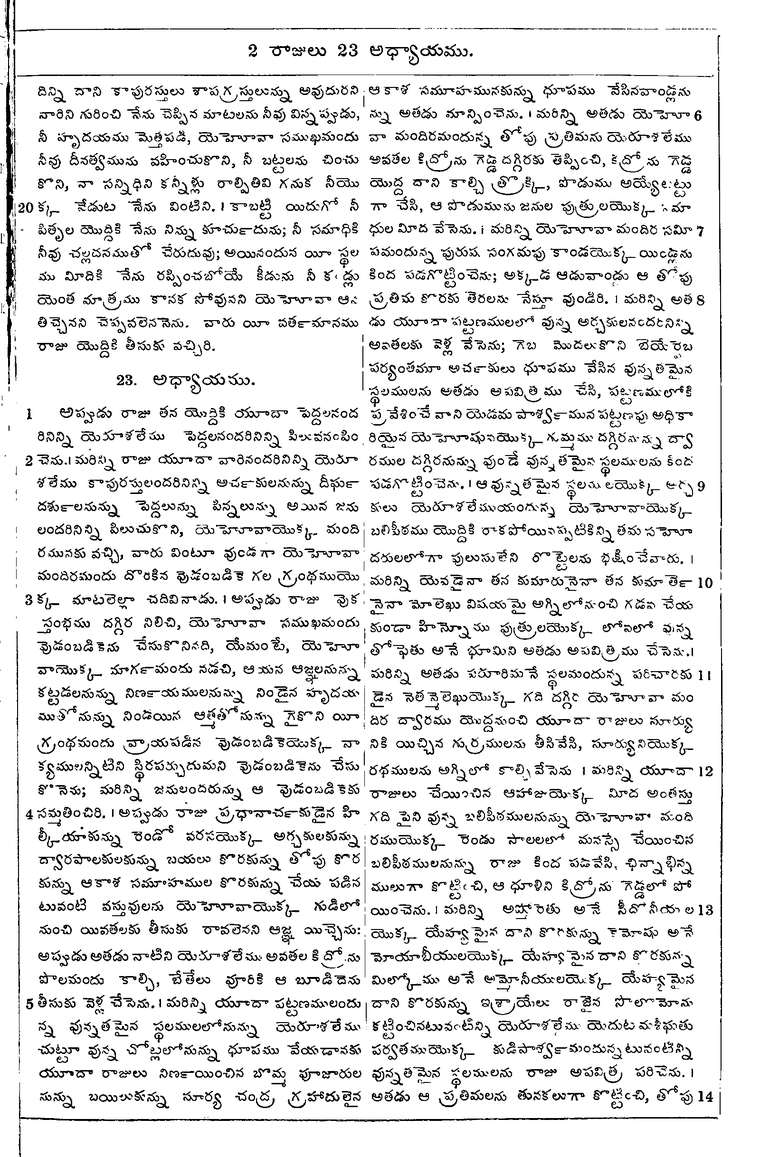 2 రాజులు 23 అధ్యాయము.
దిన్ని దాని కాపురస్తులు శాపగ్రస్తులున్ను అవుదురని
వారిని గురించి నేను చెప్పిన మాటలను నీవు విన్నప్పుడు,
నీ హృదయము మెత్తపడి, యెహోవా సముఖమందు
నీవు దీనత్వమును వహించుకొని, నీ బట్టలను చించు
కొని, నా సన్నిధిని కన్నీళ్లు రాల్పితివి గనుక నీయొ
20 క్క మొర నేను వింటిని. । కాబట్టి యిదుగో నీ
పితృల యొద్దికి నేను నిన్ను కూర్చుదును; నీ సమాధికి
నీవు చల్లదనముతో చేరుదువు; అయినందున యీ స్థల
ము మీదికి నేను రప్పించబోయే కీడును నీ కండ్లు
యెంత మాత్రము కానక పోవునని యెహోవా ఆన
తిచ్చెనని చెప్పవలెననెను. వారు యీ వర్తమానము
రాజు యొద్దికి తీసుకు వచ్చిరి.
23. అధ్యాయము.
1 అప్పుడు రాజు తన యొద్దికి యూదా పెద్దలనంద
రినిన్ని యెరూశలేము పెద్దలనందరినిన్ని పిలువనంపిం
2 చెను. । మరిన్ని రాజు యూదా వారినందరినిన్ని యెరూ
శలేము కాపురస్తులందరినిన్ని అర్చకులనున్ను దీర్ఘ
దర్శులనున్ను పెద్దలున్ను పిన్నలున్ను అయిన జను
లందరినిన్ని పిలుచుకొని, యెహోవాయొక్క మంది
రమునకు వచ్చి, వారు వింటూ వుండగా యెహోవా
మందిరమందు దొరికిన వుడంబడికె గల గ్రంథముయొ
3 క్క మాటలెల్లా చదివినాడు. । అప్పుడు రాజు వొక
స్తంభము దగ్గిర నిలిచి, యెహోవా సముఖమందు
వుడంబడికెను చేసుకొనినది, యేమంటే, యెహో
వాయొక్క మార్గమందు నడచి, ఆయన ఆజ్ఞలనున్ను
కట్టడలనున్ను నిర్ణయములనున్ను నిండైన హృదయ
ముతోనున్ను నిండయిన ఆత్మతోనున్ను గైకొని యీ
గ్రంథమందు వ్రాయపడిన వుడంబడికెయొక్క వా
క్యములన్నిటిని స్థిరపర్చుదుమని వుడంబడికెను చేసు
కొనెను; మరిన్ని జనులందరున్ను ఆ వుడంబడికెకు
4 సమ్మతించిరి. । అప్పుడు రాజు ప్రధానార్చకుడైన హి
ల్కీయాకున్ను రెండో వరసయొక్క అర్చకులకున్ను
ద్వారపాలకులకున్ను బయలు కొరకున్ను తోపు కొర
కున్ను ఆకాశ సమూహముల కొరకున్ను చేయ పడిన
టువంటి వస్తువులను యెహోవాయొక్క గుడిలో
నుంచి యివతలకు తీసుకు రావలెనని ఆజ్ఞ యిచ్చెను:
అప్పుడు అతడు వాటిని యెరూశలేము అవతల కిద్రోను
పొలమందు కాల్చి, బేతేలు వూరికి ఆ బూడిదెను
5 తీసుకు వెళ్ల చేసెను. । మరిన్ని యూదా పట్టణములందు
న్న వున్నతమైన స్థలములలోనున్ను యెరూశలేము
చుట్టూ వున్న చోట్లలోనున్ను ధూపము వేయడానకు
యూదా రాజులు నిర్ణయించిన బొమ్మ పూజారుల
నున్ను బయిలుకున్ను సూర్య చంద్ర గ్రహాదులైన
ఆకాశ సమూహమునకున్ను ధూపము వేసినవాండ్లను
న్ను అతడు మాన్పించెను. । మరిన్ని అతడు యెహో 6
వా మందిరమందున్న తోపు ప్రతిమను యెరూశలేము
అవతల కిద్రోను గెడ్డ దగ్గిరకు తెప్పించి, కిద్రోను గెడ్డ
యొద్ద దాని కాల్చి త్రొక్కి, పొడుము అయ్యేటట్టు
గా చేసి, ఆ పొడుమును జనుల పుత్రులయొక్క సమా
ధుల మీద వేసెను. । మరిన్ని యెహోవా మందిర సమీ 7
పమందున్న పురుష సంగమపు కాండయొక్క యిండ్లను
కింద పడగొట్టించెను; అక్కడ ఆడువాండ్లు ఆ తోపు
ప్రతిమ కొరకు తెరలను నేస్తూ వుండిరి. । మరిన్ని అత 8
డు యూదా పట్టణములలో వున్న అర్చకులనందరినిన్ని
అవతలకు వెళ్ల చేసెను; గెబ మొదలుకొని బెయేర్షెబ
పర్యంతమూ అర్చకులు ధూపము వేసిన వున్నతమైన
స్థలములను అతడు అపవిత్రము చేసి, పట్టణములోకి
ప్రవేశించే వాని యెడమ పార్శ్వమున పట్టణపు అధికా
రియైన యెహోషువయొక్క గుమ్మము దగ్గిరనున్న ద్వా
రముల దగ్గిరనున్ను వుండే వున్నతమైన స్థలములను కింద
పడగొట్టించెను. । ఆ వున్నతమైన స్థలములయొక్క అర్చ 9
కులు యెరూశలేముయందున్న యెహోవాయొక్క
బలిపీఠము యొద్దికి రాకపోయినప్పటికిన్ని తమ సహో
దరులలోగా పులుసులేని రొట్టెలను భక్షించేవారు. ।
మరిన్ని యెవడైనా తన కుమారునైనా తన కుమార్తె 10
నైనా మోలెఖు విషయమై అగ్నిలోనుంచి గడవ చేయ
కుండా హిన్నోము పుత్రులయొక్క లోవలో వున్న
తోఫెతు అనే భూమిని అతడు అపవిత్రము చేసెను. ।
మరిన్ని అతడు పరూరిమనే స్థలమందున్న పరిచారకు 11
డైన నెతన్మెలెఖుయొక్క గది దగ్గిర యెహోవా మం
దిర ద్వారము యొద్దనుంచి యూదా రాజులు సూర్యు
నికి యిచ్చిన గుర్రములను తీసివేసి, సూర్యునియొక్క
రథములను అగ్నిలో కాల్చి వేసెను । మరిన్ని యూదా 12
రాజులు చేయించిన ఆహాజుయొక్క మీద అంతస్తు
గది పైని వున్న బలిపీఠములనున్ను యెహోవా మంది
రముయొక్క రెండు సాలలలో మనస్సే చేయించిన
బలిపీఠములనున్ను రాజు కింద పడవేసి, ఛిన్నాభిన్న
ములుగా కొట్టించి, ఆ ధూళిని కిద్రోను గెడ్డలో పో
యించెను. । మరిన్ని అష్తోరెతు అనే సీదోనీయుల 13
యొక్క యేహ్యమైన దాని కొరకున్ను కెమోషు అనే
మోయాబీయులయొక్క యేహ్యమైన దాని కొరకున్ను
మిల్కోము అనే అమ్మోనీయులయొక్క యేహ్యమైన
దాని కొరకున్ను ఇశ్రాయేలు రాజైన సొలొమోను
కట్టించినటువంటిన్ని యెరూశలేము యెదుట మశీఖుతు
పర్వతముయొక్క కుడిపార్శ్వమందున్నటువంటిన్ని
వున్నతమైన స్థలములను రాజు అపవిత్ర పరిచెను. ।
అతడు ఆ ప్రతిమలను తునకలుగా కొట్టించి, తోపు 14